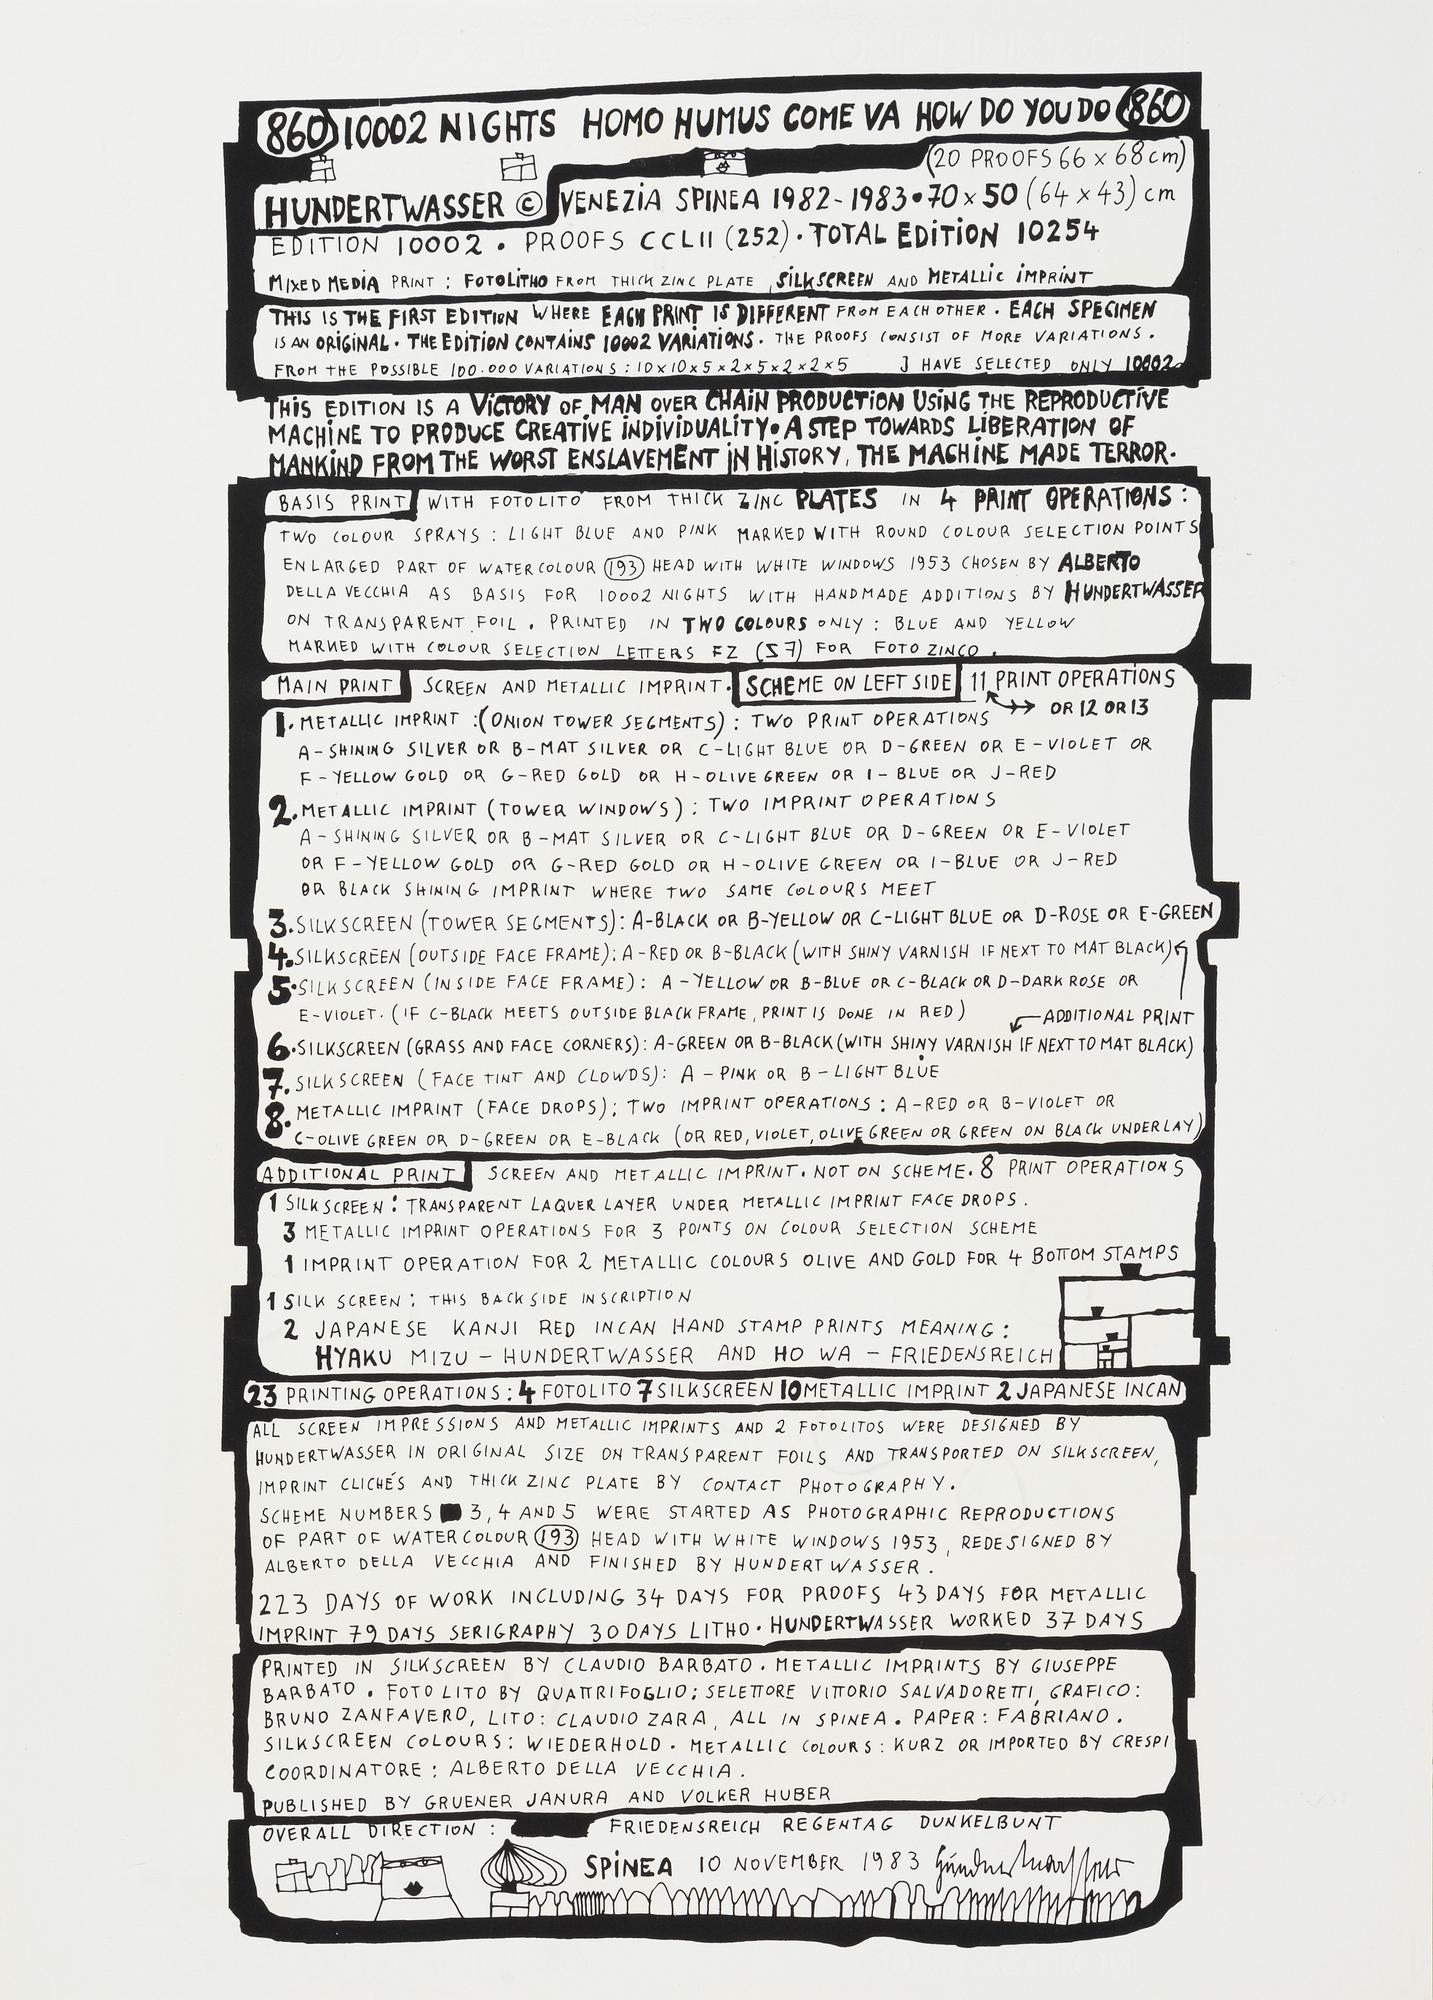 860 10002 NIGHTS HOMO HUMUS COME VA HOW DO YOU DO 860
(20 PROOFS 66 x 68 cm)
HUNDERTWASSER © VENEZIA SPINEA 1982-1983 • 70 x 50 (64 x 43) cm
EDITION 10002 • PROOFS CCLII (252) • TOTAL EDITION 10254
MIXED MEDIA PRINT : FOTOLITHO FROM THICK ZINC PLATE, SILKSCREEN AND METALLIC IMPRINT
THIS IS THE FIRST EDITION WHERE EACH PRINT IS DIFFERENT FROM EACH OTHER • EACH SPECIMEN
IS AN ORIGINAL • THE EDITION CONTAINS 10002 VARIATIONS • THE PROOFS CONSIST OF MORE VARIATIONS.
FROM THE POSSIBLE 100.000 VARIATIONS : 10x10x5x2x5x2x2x5 I HAVE SELECTED ONLY 10002.
THIS EDITION IS A VICTORY OF MAN OVER CHAIN PRODUCTION USING THE REPRODUCTIVE
MACHINE TO PRODUCE CREATIVE INDIVIDUALITY • A STEP TOWARDS LIBERATION OF
MANKIND FROM THE WORST ENSLAVEMENT IN HISTORY, THE MACHINE MADE TERROR.
BASIS PRINT WITH FOTOLITO FROM THICK ZINC PLATES IN 4 PRINT OPERATIONS :
TWO COLOUR SPRAYS : LIGHT BLUE AND PINK MARKED WITH ROUND COLOUR SELECTION POINTS
ENLARGED PART OF WATERCOLOUR 193 HEAD WITH WHITE WINDOWS 1953 CHOSEN BY ALBERTO
DELLA VECCHIA AS BASIS FOR 10002 NIGHTS WITH HANDMADE ADDITIONS BY HUNDERTWASSER
ON TRANSPARENT FOIL. PRINTED IN TWO COLOURS ONLY : BLUE AND YELLOW
MARKED WITH COLOUR SELECTION LETTERS FZ (S7) FOR FOTO ZINCO.
MAIN PRINT SCREEN AND METALLIC IMPRINT. SCHEME ON LEFT SIDE 11 PRINT OPERATIONS
OR 12 OR 13
1. METALLIC IMPRINT : (ONION TOWER SEGMENTS) : TWO PRINT OPERATIONS
A-SHINING SILVER OR B-MAT SILVER OR C-LIGHT BLUE OR D-GREEN OR E-VIOLET OR
F-YELLOW GOLD OR G-RED GOLD OR H-OLIVE GREEN OR I-BLUE OR J-RED
2. METALLIC IMPRINT (TOWER WINDOWS) : TWO IMPRINT OPERATIONS
A-SHINING SILVER OR B-MAT SILVER OR C-LIGHT BLUE OR D-GREEN OR E-VIOLET
OR F-YELLOW GOLD OR G-RED GOLD OR H-OLIVE GREEN OR I-BLUE OR J-RED
OR BLACK SHINING IMPRINT WHERE TWO SAME COLOURS MEET
3. SILKSCREEN (TOWER SEGMENTS) : A-BLACK OR B-YELLOW OR C-LIGHT BLUE OR D-ROSE OR E-GREEN
4. SILKSCREEN (OUTSIDE FACE FRAME) : A-RED OR B-BLACK (WITH SHINY VARNISH IF NEXT TO MAT BLACK)
5. SILKSCREEN (INSIDE FACE FRAME) : A-YELLOW OR B-BLUE OR C-BLACK OR D-DARK ROSE OR
E-VIOLET. (IF C-BLACK MEETS OUTSIDE BLACK FRAME, PRINT IS DONE IN RED) ADDITIONAL PRINT
6. SILKSCREEN (GRASS AND FACE CORNERS) : A-GREEN OR B-BLACK (WITH SHINY VARNISH IF NEXT TO MAT BLACK)
7. SILKSCREEN (FACE TINT AND CLOWDS) : A-PINK OR B-LIGHT BLUE
8. METALLIC IMPRINT (FACE DROPS) ; TWO IMPRINT OPERATIONS : A-RED OR B-VIOLET OR
C-OLIVE GREEN OR D-GREEN OR E-BLACK (OR RED, VIOLET, OLIVE GREEN OR GREEN ON BLACK UNDERLAY)
ADDITIONAL PRINT SCREEN AND METALLIC IMPRINT. NOT ON SCHEME. 8 PRINT OPERATIONS
1 SILKSCREEN : TRANSPARENT LAQUER LAYER UNDER METALLIC IMPRINT FACE DROPS.
3 METALLIC IMPRINT OPERATIONS FOR 3 POINTS ON COLOUR SELECTION SCHEME
1 IMPRINT OPERATION FOR 2 METALLIC COLOURS OLIVE AND GOLD FOR 4 BOTTOM STAMPS
1 SILK SCREEN : THIS BACKSIDE INSCRIPTION
2 JAPANESE KANJI RED INCAN HAND STAMP PRINTS MEANING :
HYAKU MIZU - HUNDERTWASSER AND HO WA - FRIEDENSREICH
23 PRINTING OPERATIONS : 4 FOTOLITO 7 SILKSCREEN 10 METALLIC IMPRINT 2 JAPANESE INCAN
ALL SCREEN IMPRESSIONS AND METALLIC IMPRINTS AND 2 FOTOLITOS WERE DESIGNED BY
HUNDERTWASSER IN ORIGINAL SIZE ON TRANSPARENT FOILS AND TRANSPORTED ON SILKSCREEN,
IMPRINT CLICHÉS AND THICK ZINC PLATE BY CONTACT PHOTOGRAPHY.
SCHEME NUMBERS 3, 4 AND 5 WERE STARTED AS PHOTOGRAPHIC REPRODUCTIONS
OF PART OF WATERCOLOUR 193 HEAD WITH WHITE WINDOWS 1953, REDESIGNED BY
ALBERTO DELLA VECCHIA AND FINISHED BY HUNDERTWASSER.
223 DAYS OF WORK INCLUDING 34 DAYS FOR PROOFS 43 DAYS FOR METALLIC
IMPRINT 79 DAYS SERIGRAPHY 30 DAYS LITHO • HUNDERTWASSER WORKED 37 DAYS
PRINTED IN SILKSCREEN BY CLAUDIO BARBATO • METALLIC IMPRINTS BY GIUSEPPE
BARBATO • FOTOLITO BY QUATTRIFOGLIO ; SELETTORE VITTORIO SALVADORETTI, GRAFICO :
BRUNO ZANFAVERO, LITO : CLAUDIO ZARA, ALL IN SPINEA • PAPER : FABRIANO.
SILKSCREEN COLOURS : WIEDERHOLD • METALLIC COLOURS : KURZ OR IMPORTED BY CRESPI
COORDINATORE : ALBERTO DELLA VECCHIA.
PUBLISHED BY GRUENER JANURA AND VOLKER HUBER
OVERALL DIRECTION : FRIEDENSREICH REGENTAG DUNKELBUNT
SPINEA 10 NOVEMBER 1983 Hundertwasser